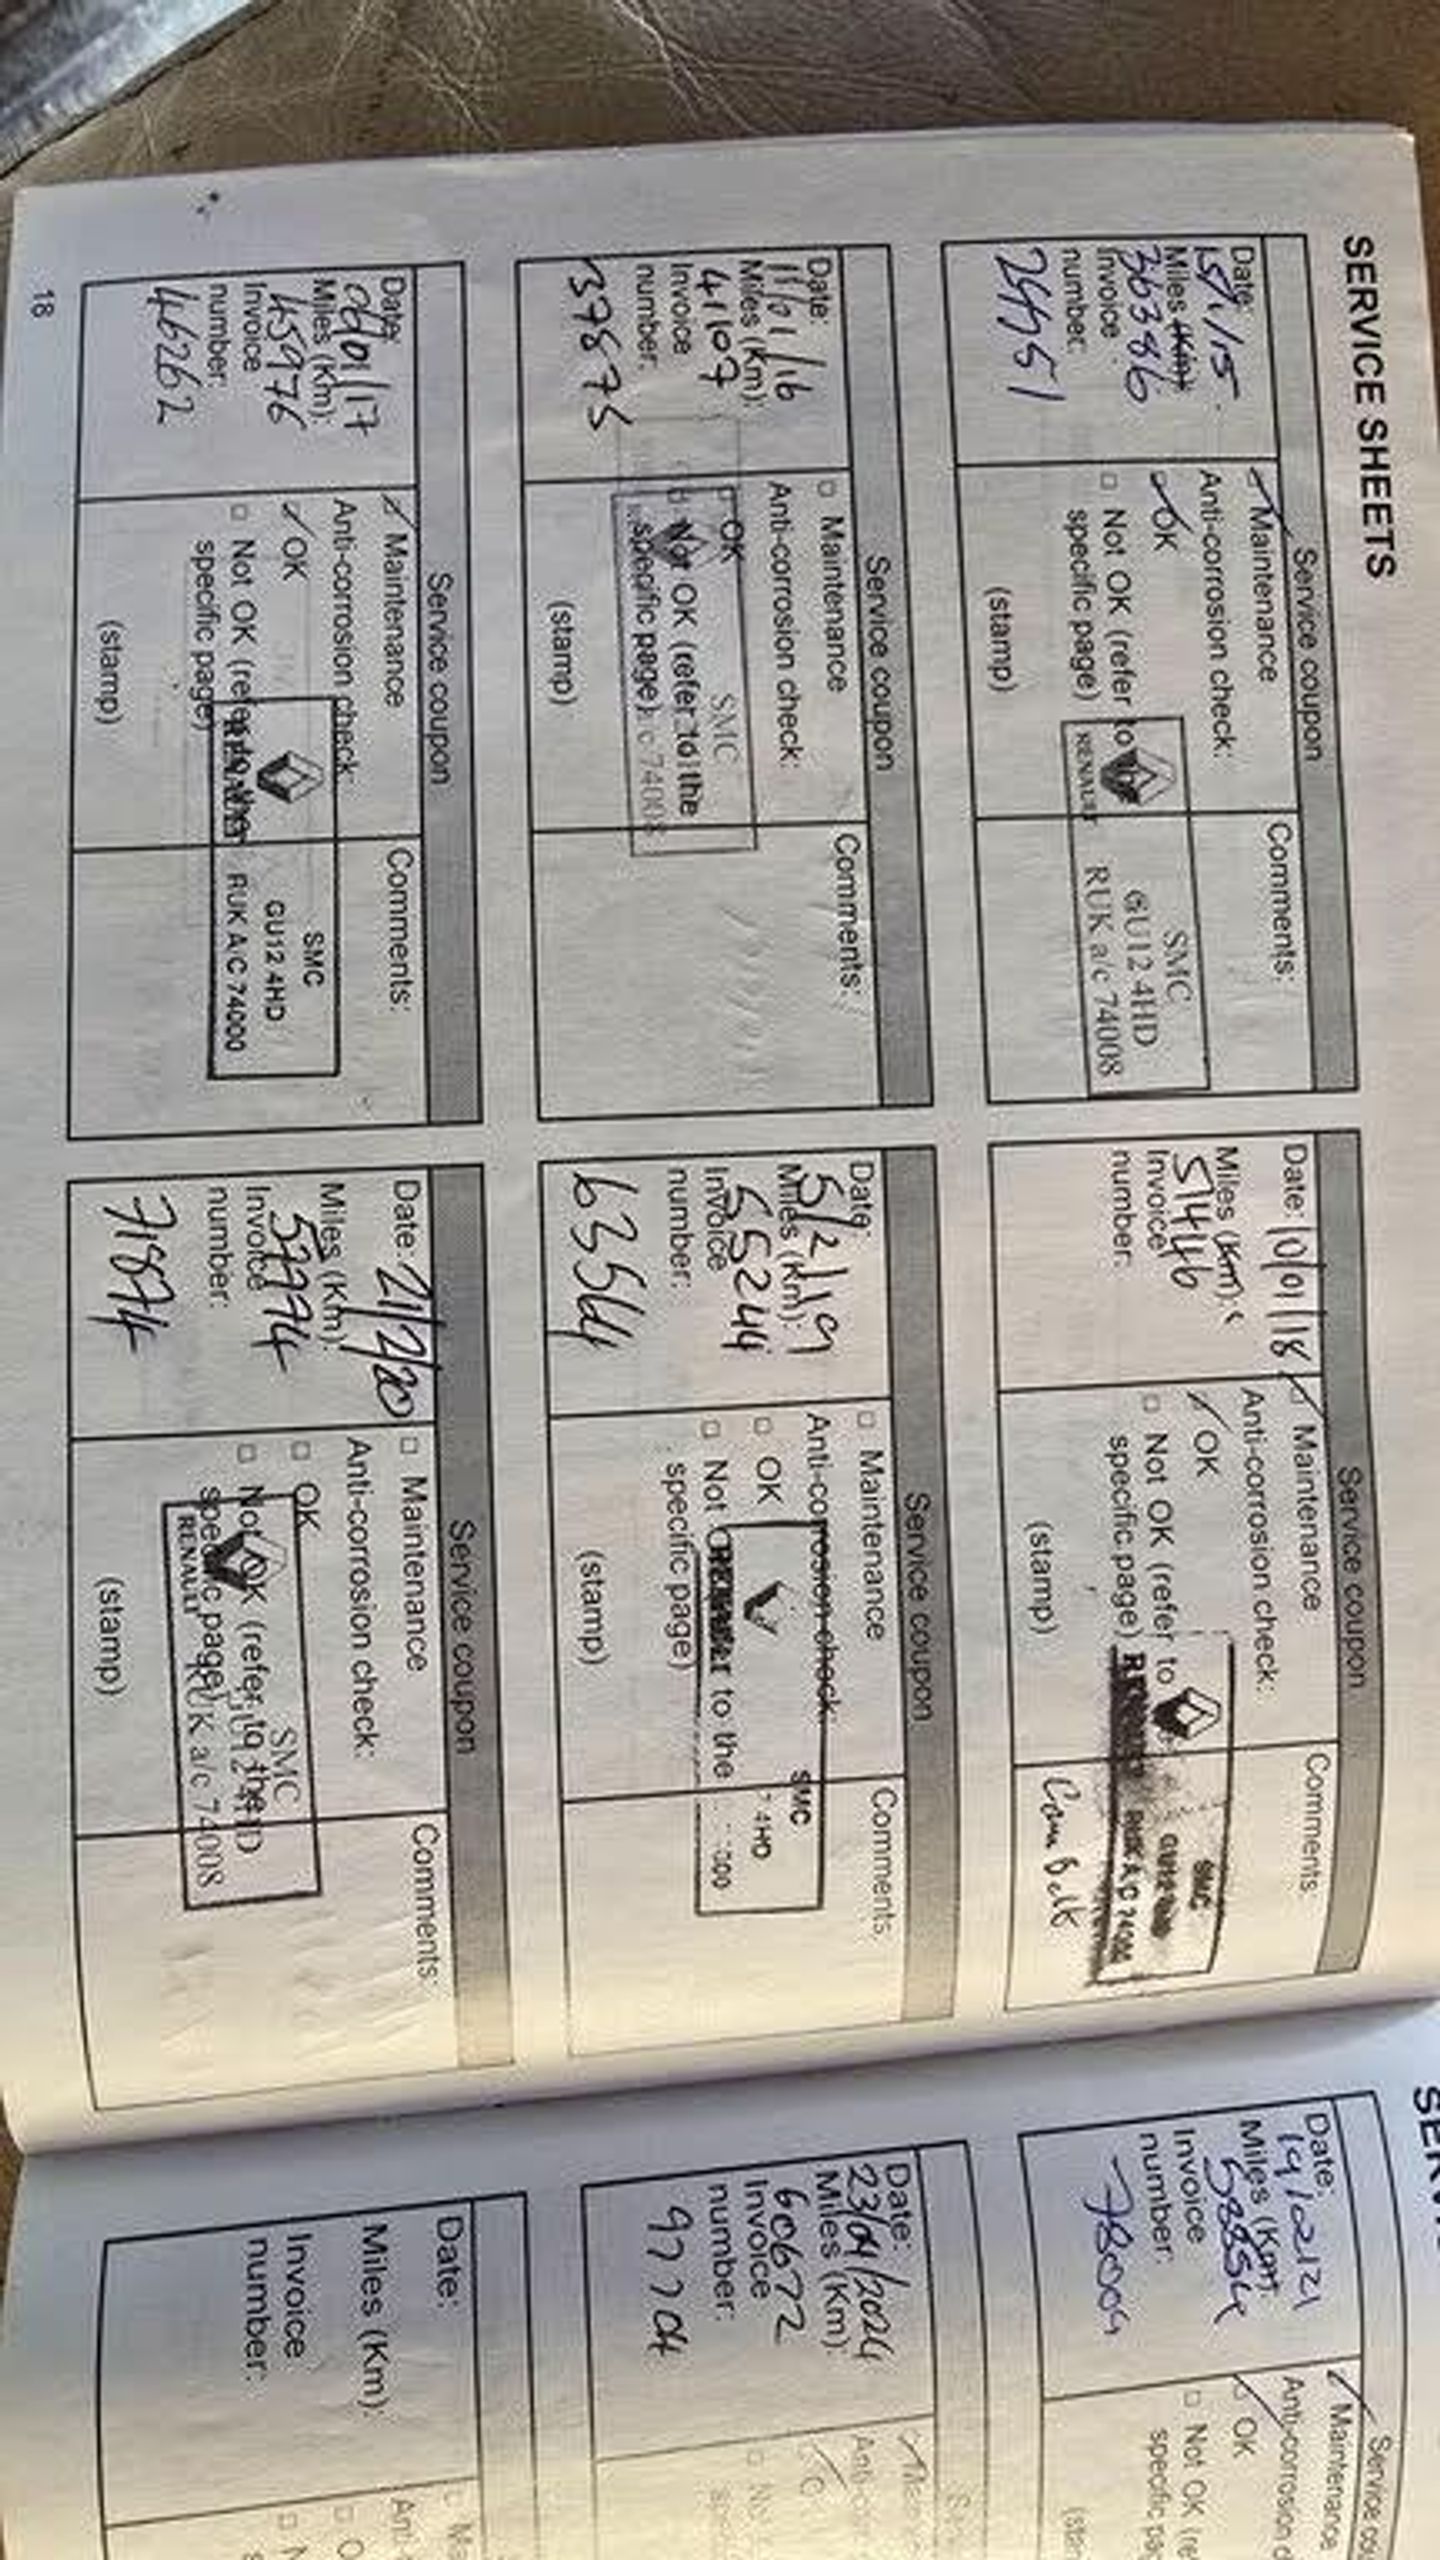 SERVICE SHEETS
Service coupon
Date:
15/1/15
Miles (Km)
36386
Invoice
number:
24451
Maintenance
Anti-corrosion check:
OK
Not OK (refer to
specific page)
(stamp)
Comments:
RENAULT
SMC
GU12 4HD
RUK a/c 74008
Service coupon
Date:
11/01/16
Miles (Km):
41107
Invoice
number:
37875
Maintenance
Anti-corrosion check:
OK
Not OK (refer to the
specific page)
(stamp)
Comments:
SMC
c 74008
Service coupon
Date:
09/01/17
Miles (Km):
45976
Invoice
number:
46262
Maintenance
Anti-corrosion check:
OK
Not OK (refer to the
specific page)
(stamp)
Comments:
SMC
GU12 4HD
RUK A/C 74000
18
Service coupon
Date: 10/01/18
Miles (Km):
51446
Invoice
number:
Maintenance
Anti-corrosion check:
OK
Not OK (refer to
specific page)
(stamp)
Comments:
SMC
Cam Belt
Service coupon
Date:
5/2/19
Miles (Km):
55244
Invoice
number:
63564
Maintenance
Anti-corrosion check:
OK
Not OK (refer to the
specific page)
(stamp)
Comments:
SMC
4HD
Service coupon
Date: 21/2/20
Miles (Km):
57774
Invoice
number:
71874
Maintenance
Anti-corrosion check:
OK
Not OK (refer to the
specific page)
(stamp)
Comments:
RENAULT
SMC
RUK a/c 74008
Date:
19/02/21
Miles (Km):
Invoice
number:
78009
Maintenance
Anti-corrosion
OK
Not OK
Service
Date:
23/04/2024
Miles (Km):
60672
Invoice
number:
97704
Date:
Miles (Km):
Invoice
number: